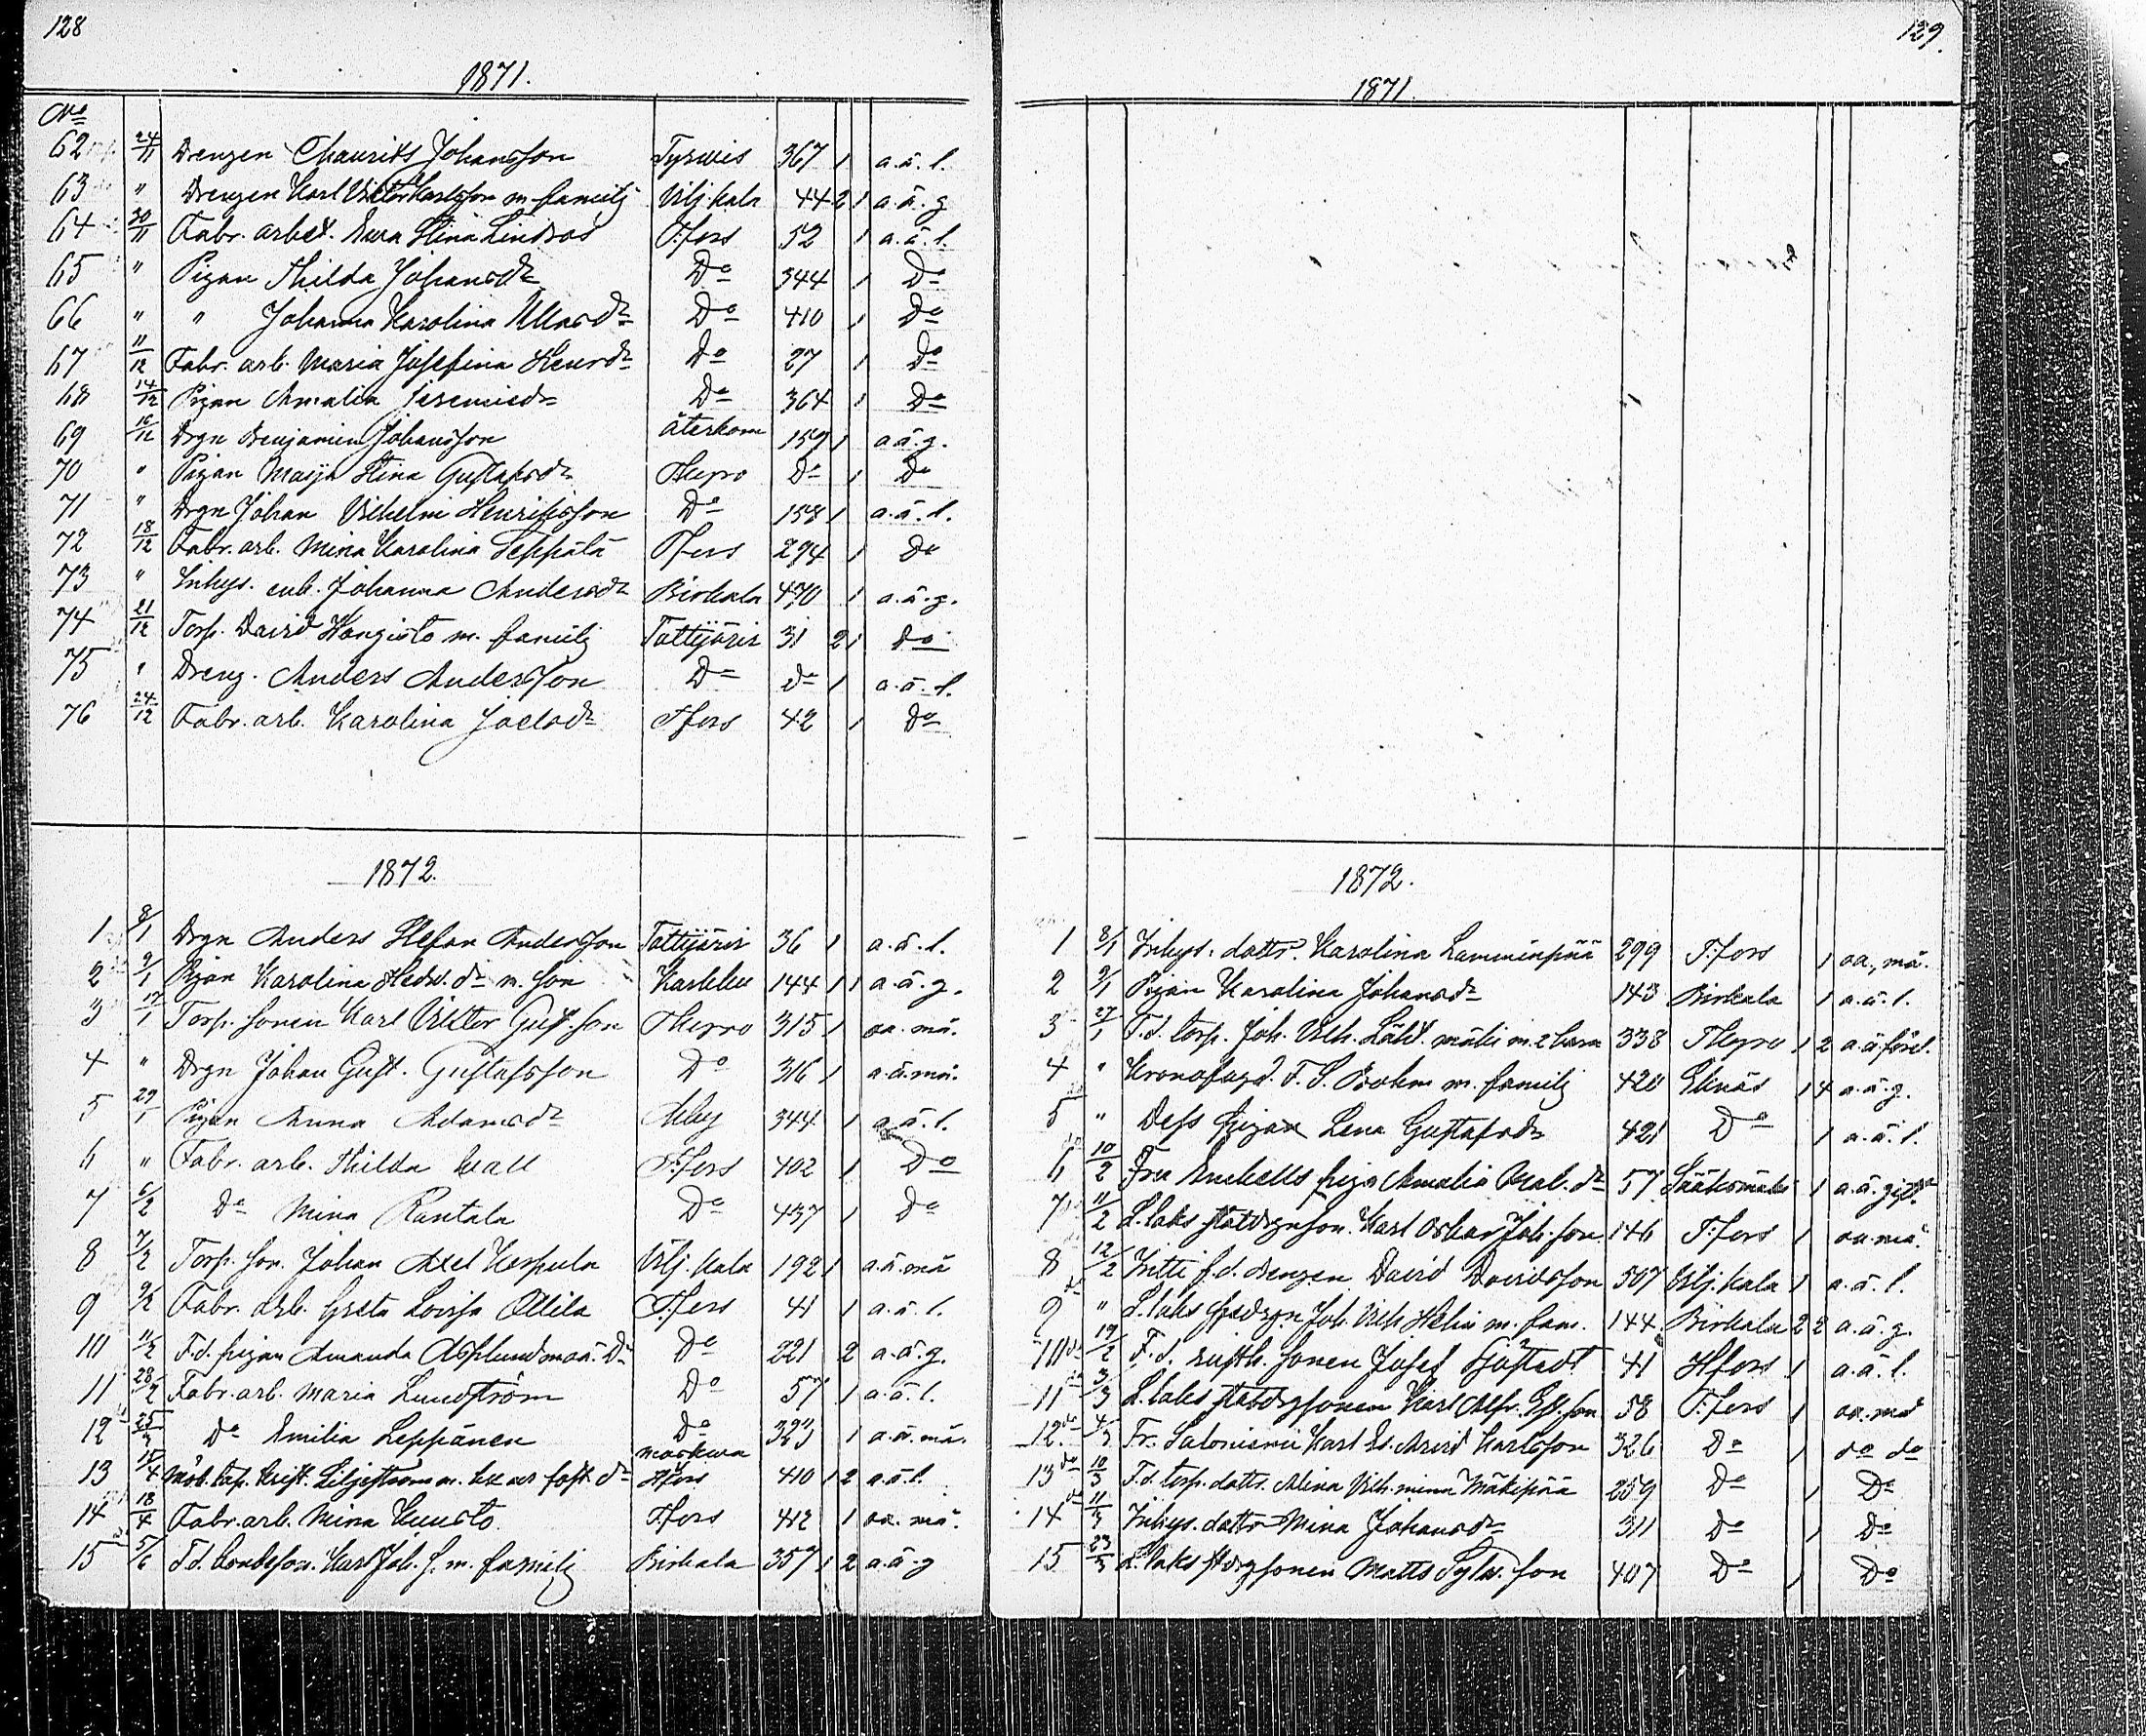 128
1871.
No
62 24/11 Drengen Mauritz Johansson Tyrvis 367 1 a.ä.l.
63 " Drengen Karl Viktor Karlsson m. familj Vilj.kala 44 2 1 a.ä.g
64 30/11 Fabr. arbet. Eva Stina Lindroos T:fors 52 1 a.ä.l.
65 " Pigan Hilda Johansdr Do 344 1 Do
66 " " Johanna Karolina Do 410 1 Do
67 11/12 Fabr. arb. Maria Josefina Henrdr Do 27 1 Do
68 14/12 Pigan Amalia Jeremiedr Do 364 1 Do
69 16/12 Drgn Benjamin Johansson återkom 159 1 a.ä.g.
70 " Pigan Maija Stina Gustafsdr Messo Do 1 Do
71 " Drgn Johan Vilhelm Henriksson Do 158 1 a.ä.l.
72 18/12 Fabr. arb. Mina Karolina Seppälä Tfors 294 1 Do
73 " Inhys. enk. Johanna Andersdr Birkala 470 1 a.ä.g.
74 21/12 Torp. David Kangisto m. familj Tottijärvi 31 2 1 Do
75 " Dreng. Anders Andersson Do Do 1 a.ä.l.
76 24/12 Fabr. arb. Karolina Joelsdr Tfors 42 1 Do
1872.
1 8/1 Drgn Anders Stefan Andersson Tottijärvi 36 1 a.ä.l.
2 9/1 Pigan Karolina Hedv. dr m. son Karkku 144 1 1 a.ä.g.
3 17/1 Torp. sonen Karl Viktor Gust.son 315 1 oa. mä.
4 " Drgn Johan Gust. Gustafsson Do 316 1 a.ä.mä.
5 29/1 Pigan Anna Adamsdr 344 1 a.ä.l.
6 " Fabr. arb. Hilda Wall T:fors 402 1 Do
7 6/2 Do Mina Rantala Do 437 1 Do
8 7/2 Torp. son. Johan Axel Vilj.kala 192 1 a.ä.mä
9 9/2 Fabr. arb. Greta Lovisa Ollila T:fors 41 1 a.ä.l.
10 11/2 F.d. pigan Amanda Asplund Do 221 2 a.ä.g.
11 28/2 Fabr. arb. Maria Lundström Do 57 1 a.ä.l.
12 25/3 Do Emilia Leppänen Do 323 1 a.ä.mä.
13 15/4 Liljeström Moskwa Hfors 410 1 2 a.ä.l.
14 18/4 Fabr. arb. Mina Tfors 412 1 oa. mä.
15 5/6 F.d. Karl Joh. S. m. familj Birkala 357 1 2 a.ä.g
129.
1871.
1872.
1 8/1 Inhys. dottr. Karolina Lamminpää 299 T:fors 1 oa., mä.
2 9/1 Pigan Karolina Johansdr 143 Birkala 1 a.ä.l.
3 27/1 F.d. torp. Joh. Vilh. m. 2 barn 338 1 2 a.ä.
4 " Kronofogd. F. S. m. familj 420 Ekenäs 1 4 a.ä.g.
5 " Dess pigan Lena Gustafsdr 421 Do 1 a.ä.l.
6 10/2 Fru piga Amalia 57 Sääksmäki 1 a.ä.
7 11/2 L.laks statdrgnson. Karl Oskar Joh.son 146 T:fors 1 oa.mä.
8 12/2 Intti f.d. drengen David Davidsson 507 Vilj.kala 1 a.ä.l.
9 " L.laks Joh. Vilh. Helin m. fam. 144 Birkala 2 2 a.ä.g.
10 19/2 F.d. sonen Josef 41 Hfors 1 a.ä.l.
11 3/3 L.laks statdrgsonen Karl Alfr. Gst.son 58 T:fors 1 oa.mä
12 4/3 Fr. Karl Ed. Arvid Karlsson 326 Do 1 do do
13 10/3 F.d. torp. dottr. Alina Vilh.mina Mäkipää 259 Do 1 Do
14 11/3 Inhys. dottr Mina Johansdr 311 Do 1 Do
15 23/3 L.laks stdrgsonen Matts Sylv.son 407 Do 1 Do